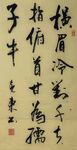 橫眉冷對千夫
指俯首甘為孺
子牛